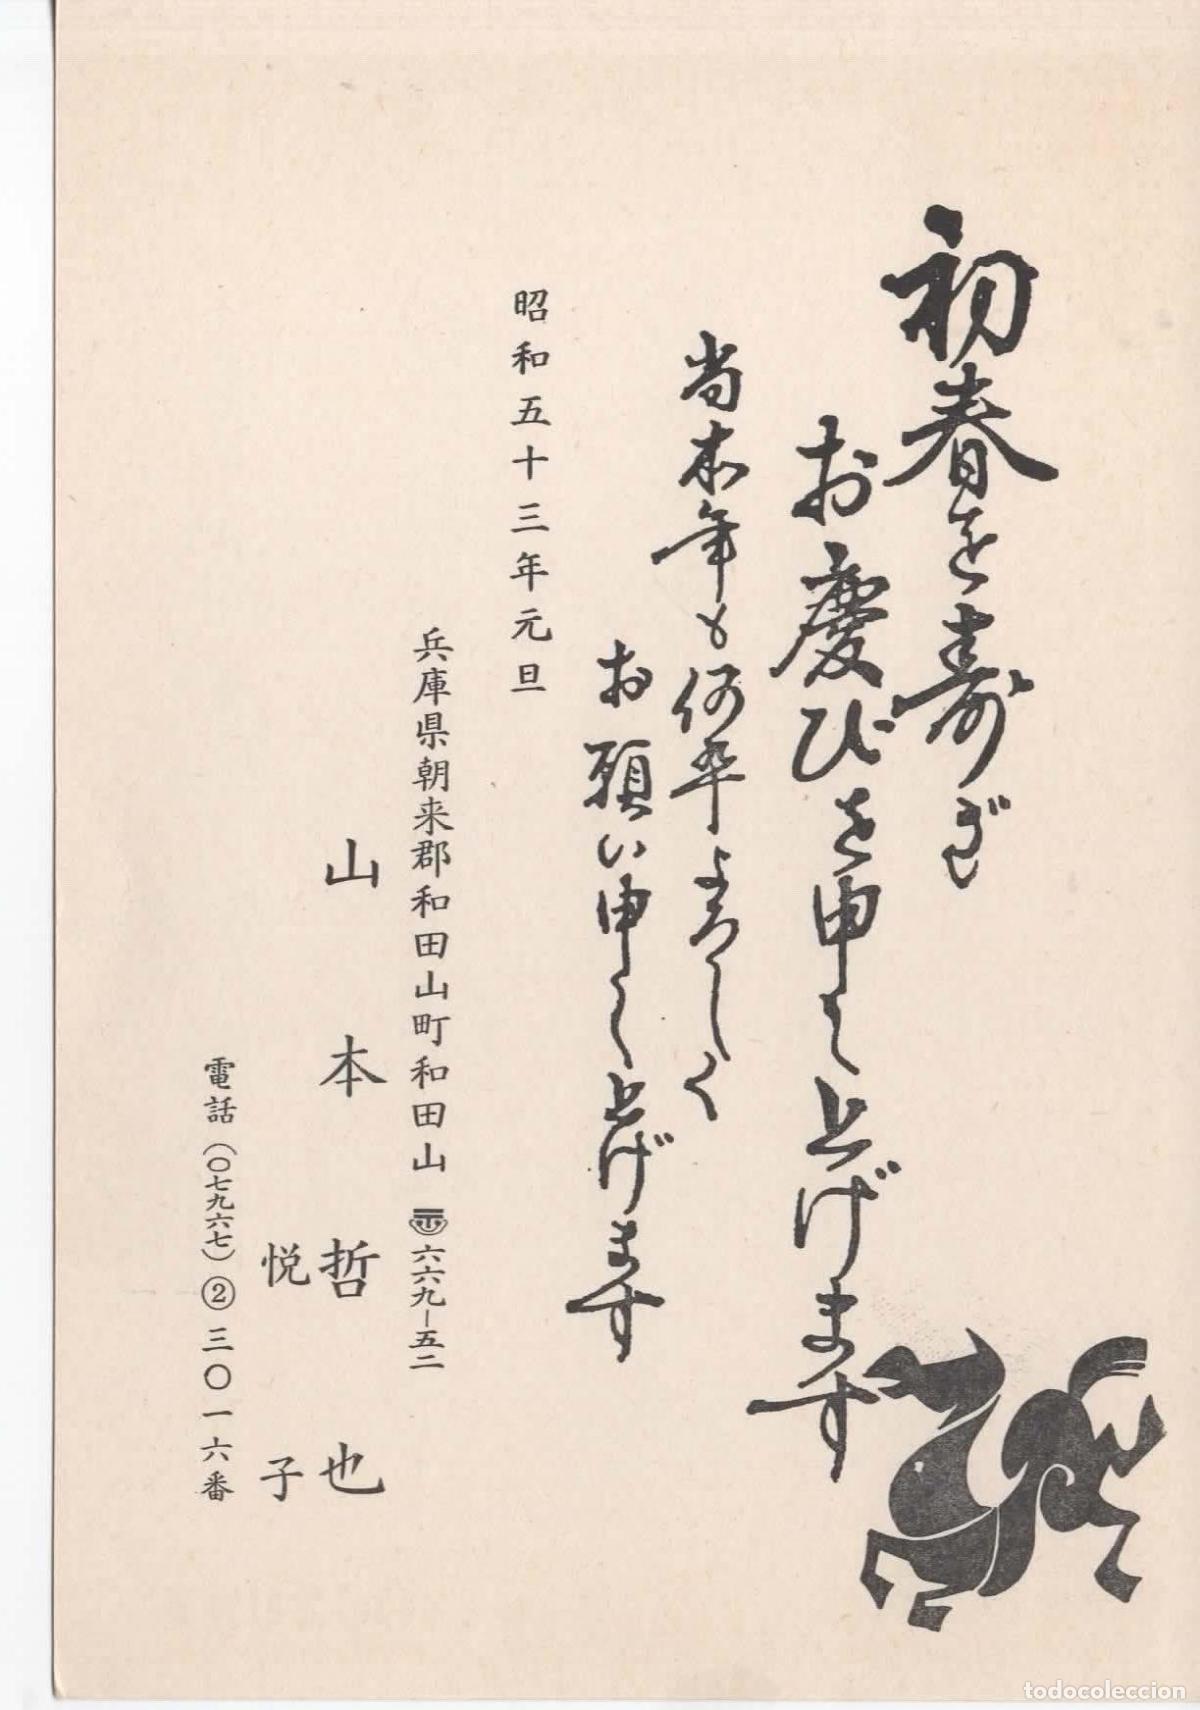 初春を寿ぎ
お慶びを申し上げます
尚本年も何卒よろしく
お願い申し上げます
昭和五十三年元旦
兵庫県朝来郡和田山町和田山 〠六六九-五二
山本哲也
悦子
電話(〇七九六七)②三〇一六番
todocoleccion